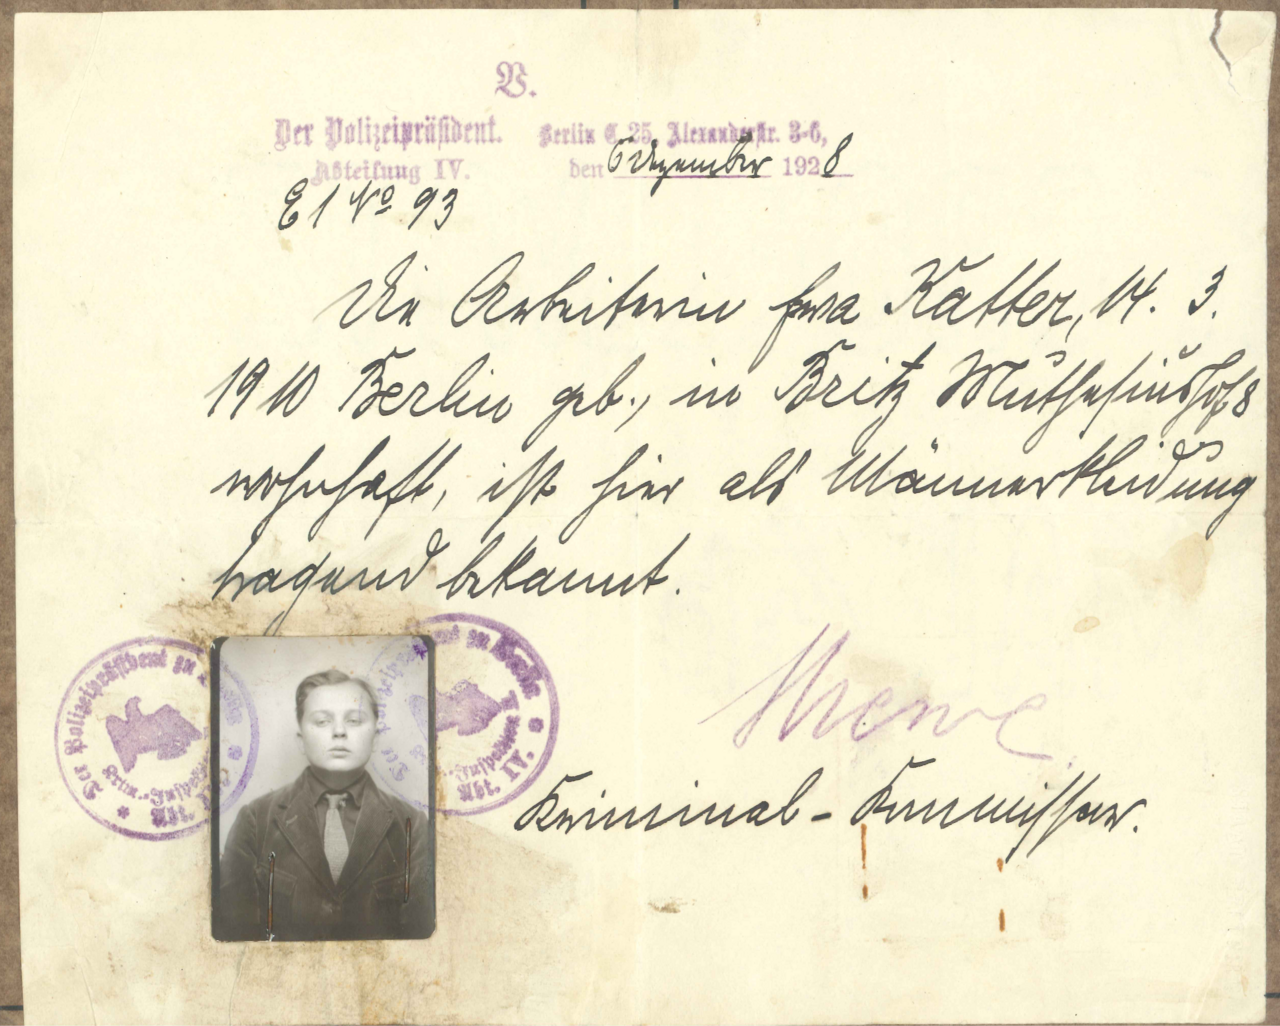 V.
Der Polizeipräsident. Berlin C. 25, Alexanderstr. 3-6,
Abteilung IV. den 6 Dezember 1928
E 1 No 93
Die Arbeiterin Eva Katter, 14. 3.
1910 Berlin geb., in Britz Muthesiushof 8
wohnhaft, ist hier als Männerkleidung
tragend bekannt.
Der Polizeipräsident zu
Krim.-Inspektion
Abt. IV.
Der Polizeipräsident zu Berlin
Krim.-Inspektion
Abt. IV.
Kriminal-Kommissar.